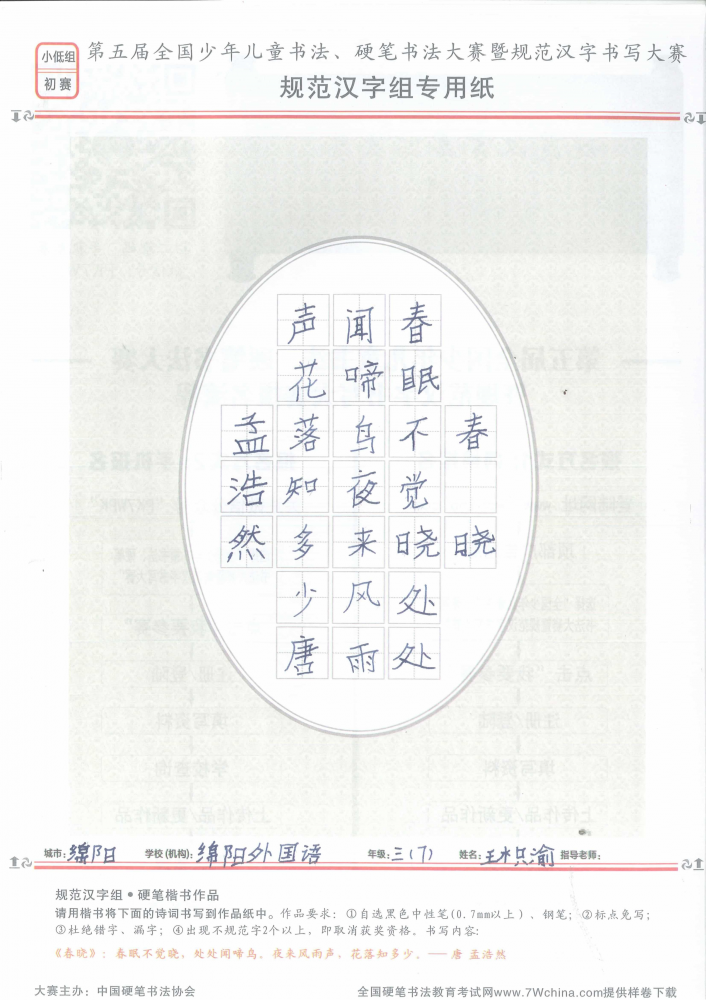 小低组
初赛
第五届全国少年儿童书法、硬笔书法大赛暨规范汉字书写大赛
规范汉字组专用纸
春晓
春眠不觉晓处处
闻啼鸟夜来风雨
声花落知多少唐
孟浩然
城市:绵阳 学校(机构):绵阳外国语 年级:三(7) 姓名:王 渝 指导老师:
规范汉字组•硬笔楷书作品
请用楷书将下面的诗词书写到作品纸中。作品要求:①自选黑色中性笔(0.7mm以上)、钢笔;②标点免写;
③杜绝错字、漏字;④出现不规范字2个以上,即取消获奖资格。书写内容:
《春晓》:春眠不觉晓,处处闻啼鸟。夜来风雨声,花落知多少。——唐 孟浩然
大赛主办:中国硬笔书法协会 全国硬笔书法教育考试网www.7Wchina.com提供样卷下载